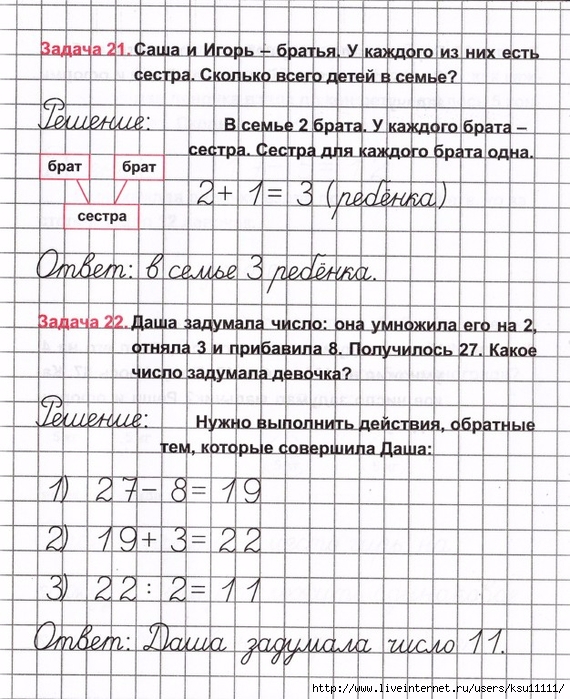 Задача 21. Саша и Игорь – братья. У каждого из них есть
сестра. Сколько всего детей в семье?
Решение: В семье 2 брата. У каждого брата –
сестра. Сестра для каждого брата одна.
брат брат
2 + 1 = 3 (ребёнка)
сестра
Ответ: в семье 3 ребёнка.
Задача 22. Даша задумала число: она умножила его на 2,
отняла 3 и прибавила 8. Получилось 27. Какое
число задумала девочка?
Решение: Нужно выполнить действия, обратные
тем, которые совершила Даша:
1) 27 – 8 = 19
2) 19 + 3 = 22
3) 22 : 2 = 11
Ответ: Даша задумала число 11.
http://www.liveinternet.ru/users/ksu11111/